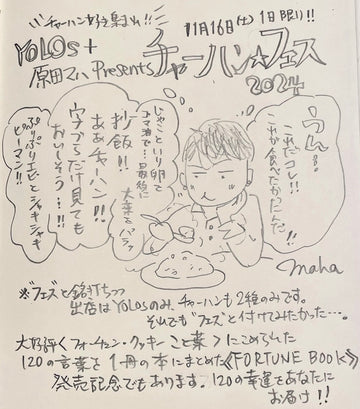 チャーハン好き集まれ!!
11月16日(土)1日限り!!
YOLOs+
原田マハ Presents
チャーハン☆フェス
2024
うん…
これだコレ!!
これが食べたかったんだ…
じゃこといり卵と
ゴマ油で…最後に
大葉をパラッ
炒飯!!
ああチャーハン!!
字づらだけ見ても
おいしそう…!!
ぷりぷりエビとシャキシャキ
ピーマン!!
maha
※"フェズ"と銘打ちつつ
出店はYOLOsのみ、チャーハンも2種のみです。
それでも"フェズ"と付けてみたかった…。
大好評<フォーチュン・クッキー こと葉>にこめられた
120の言葉を1冊の本にまとめた《FORTUNE BOOK》
発売記念でもあります。120の幸運をあなたに
お届け!!